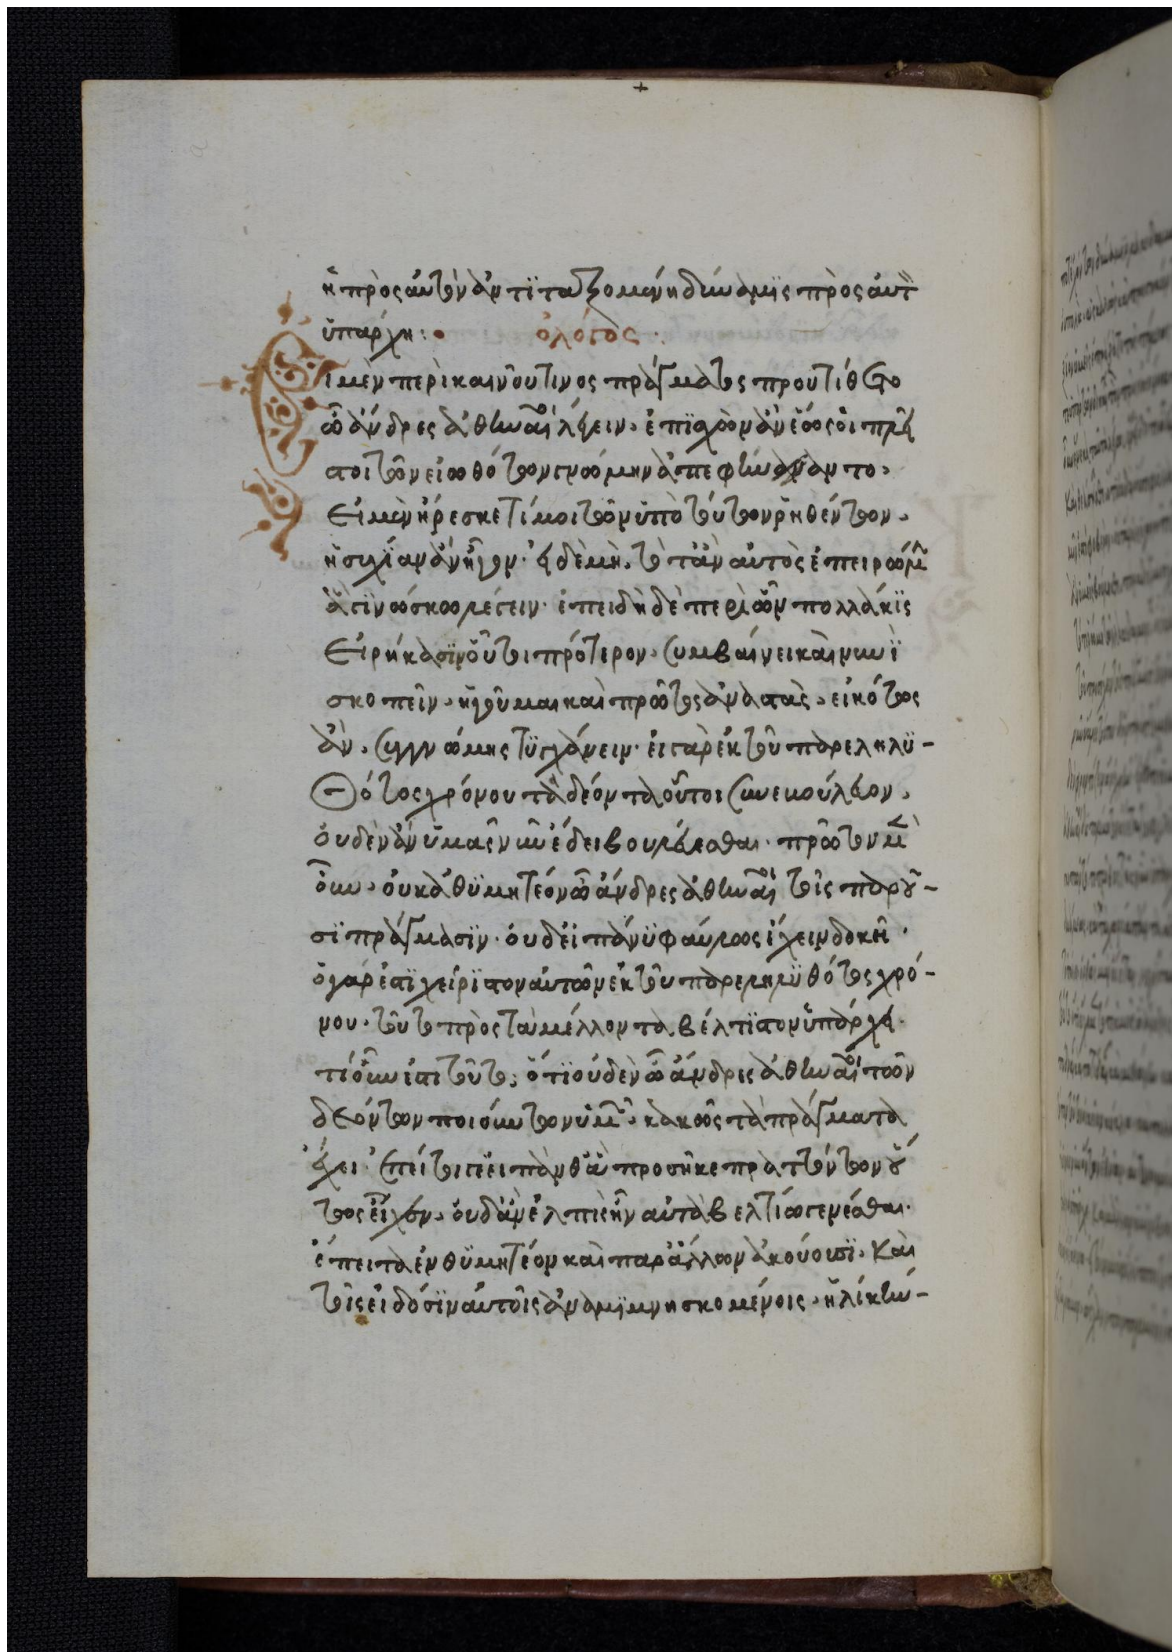 ἡ πρὸς αὐτὸν ἀντιταξομένη δύναμις πρὸς αὐτ
ὑπάρχη :
ὁ λόγος .
Εἰ μὲν περὶ καινοῦ τινος πράγματος προυτίθετο
ὦ ἄνδρες ἀθηναῖοι λέγειν, ἐπισχὼν ἂν ἕως οἱ πλεῖ
στοι τῶν εἰωθότων γνώμην ἀπεφήναντο,
Εἰ μὲν ἤρεσκέ τί μοι τῶν ὑπὸ τούτων ῥηθέντων,
ἡσυχίαν ἂν ἦγον· εἰ δὲ μὴ, τότ' ἂν αὐτὸς ἐπειρώμην
ἃ γινώσκω λέγειν· ἐπειδὴ δὲ περὶ ὧν πολλάκις
Εἰρήκασιν οὗτοι πρότερον, συμβαίνει καὶ νυνὶ
σκοπεῖν, ἡγοῦμαι καὶ πρῶτος ἀναστὰς, εἰκότως
ἂν, συγγνώμης τυγχάνειν· εἰ γὰρ ἐκ τοῦ παρεληλυ-
Θότος χρόνου τὰ δέοντα οὗτοι συνεβούλευον,
οὐδὲν ἂν ὑμᾶς νῦν ἔδει βουλεύεσθαι· πρῶτον μὲν
οὖν, οὐκ ἀθυμητέον ὦ ἄνδρες ἀθηναῖοι τοῖς παροῦ-
σι πράγμασιν· οὐδ' εἰ πάνυ φαύλως ἔχειν δοκεῖ·
ὃ γάρ ἐστι χείριστον αὐτῶν ἐκ τοῦ παρεληλυθότος χρό-
νου· τοῦτο πρὸς τὰ μέλλοντα βέλτιστον ὑπάρχει·
τί οὖν ἐστι τοῦτο; ὅτι οὐδὲν ὦ ἄνδρες ἀθηναῖοι τῶν
δεόντων ποιούντων ὑμῶν, κακῶς τὰ πράγματα
ἔχει· ἐπεί τοι γε εἰ πάνθ' ἃ προσῆκε πραττόντων οὕ
τως εἶχεν, οὐδ' ἂν ἐλπὶς ἦν αὐτὰ βελτίω γενέσθαι·
ἔπειτα ἐνθυμητέον καὶ παρ' ἄλλων ἀκούουσι, καὶ
τοῖς εἰδόσιν αὐτοῖς ἀναμιμνησκομένοις, ἡλίκην-